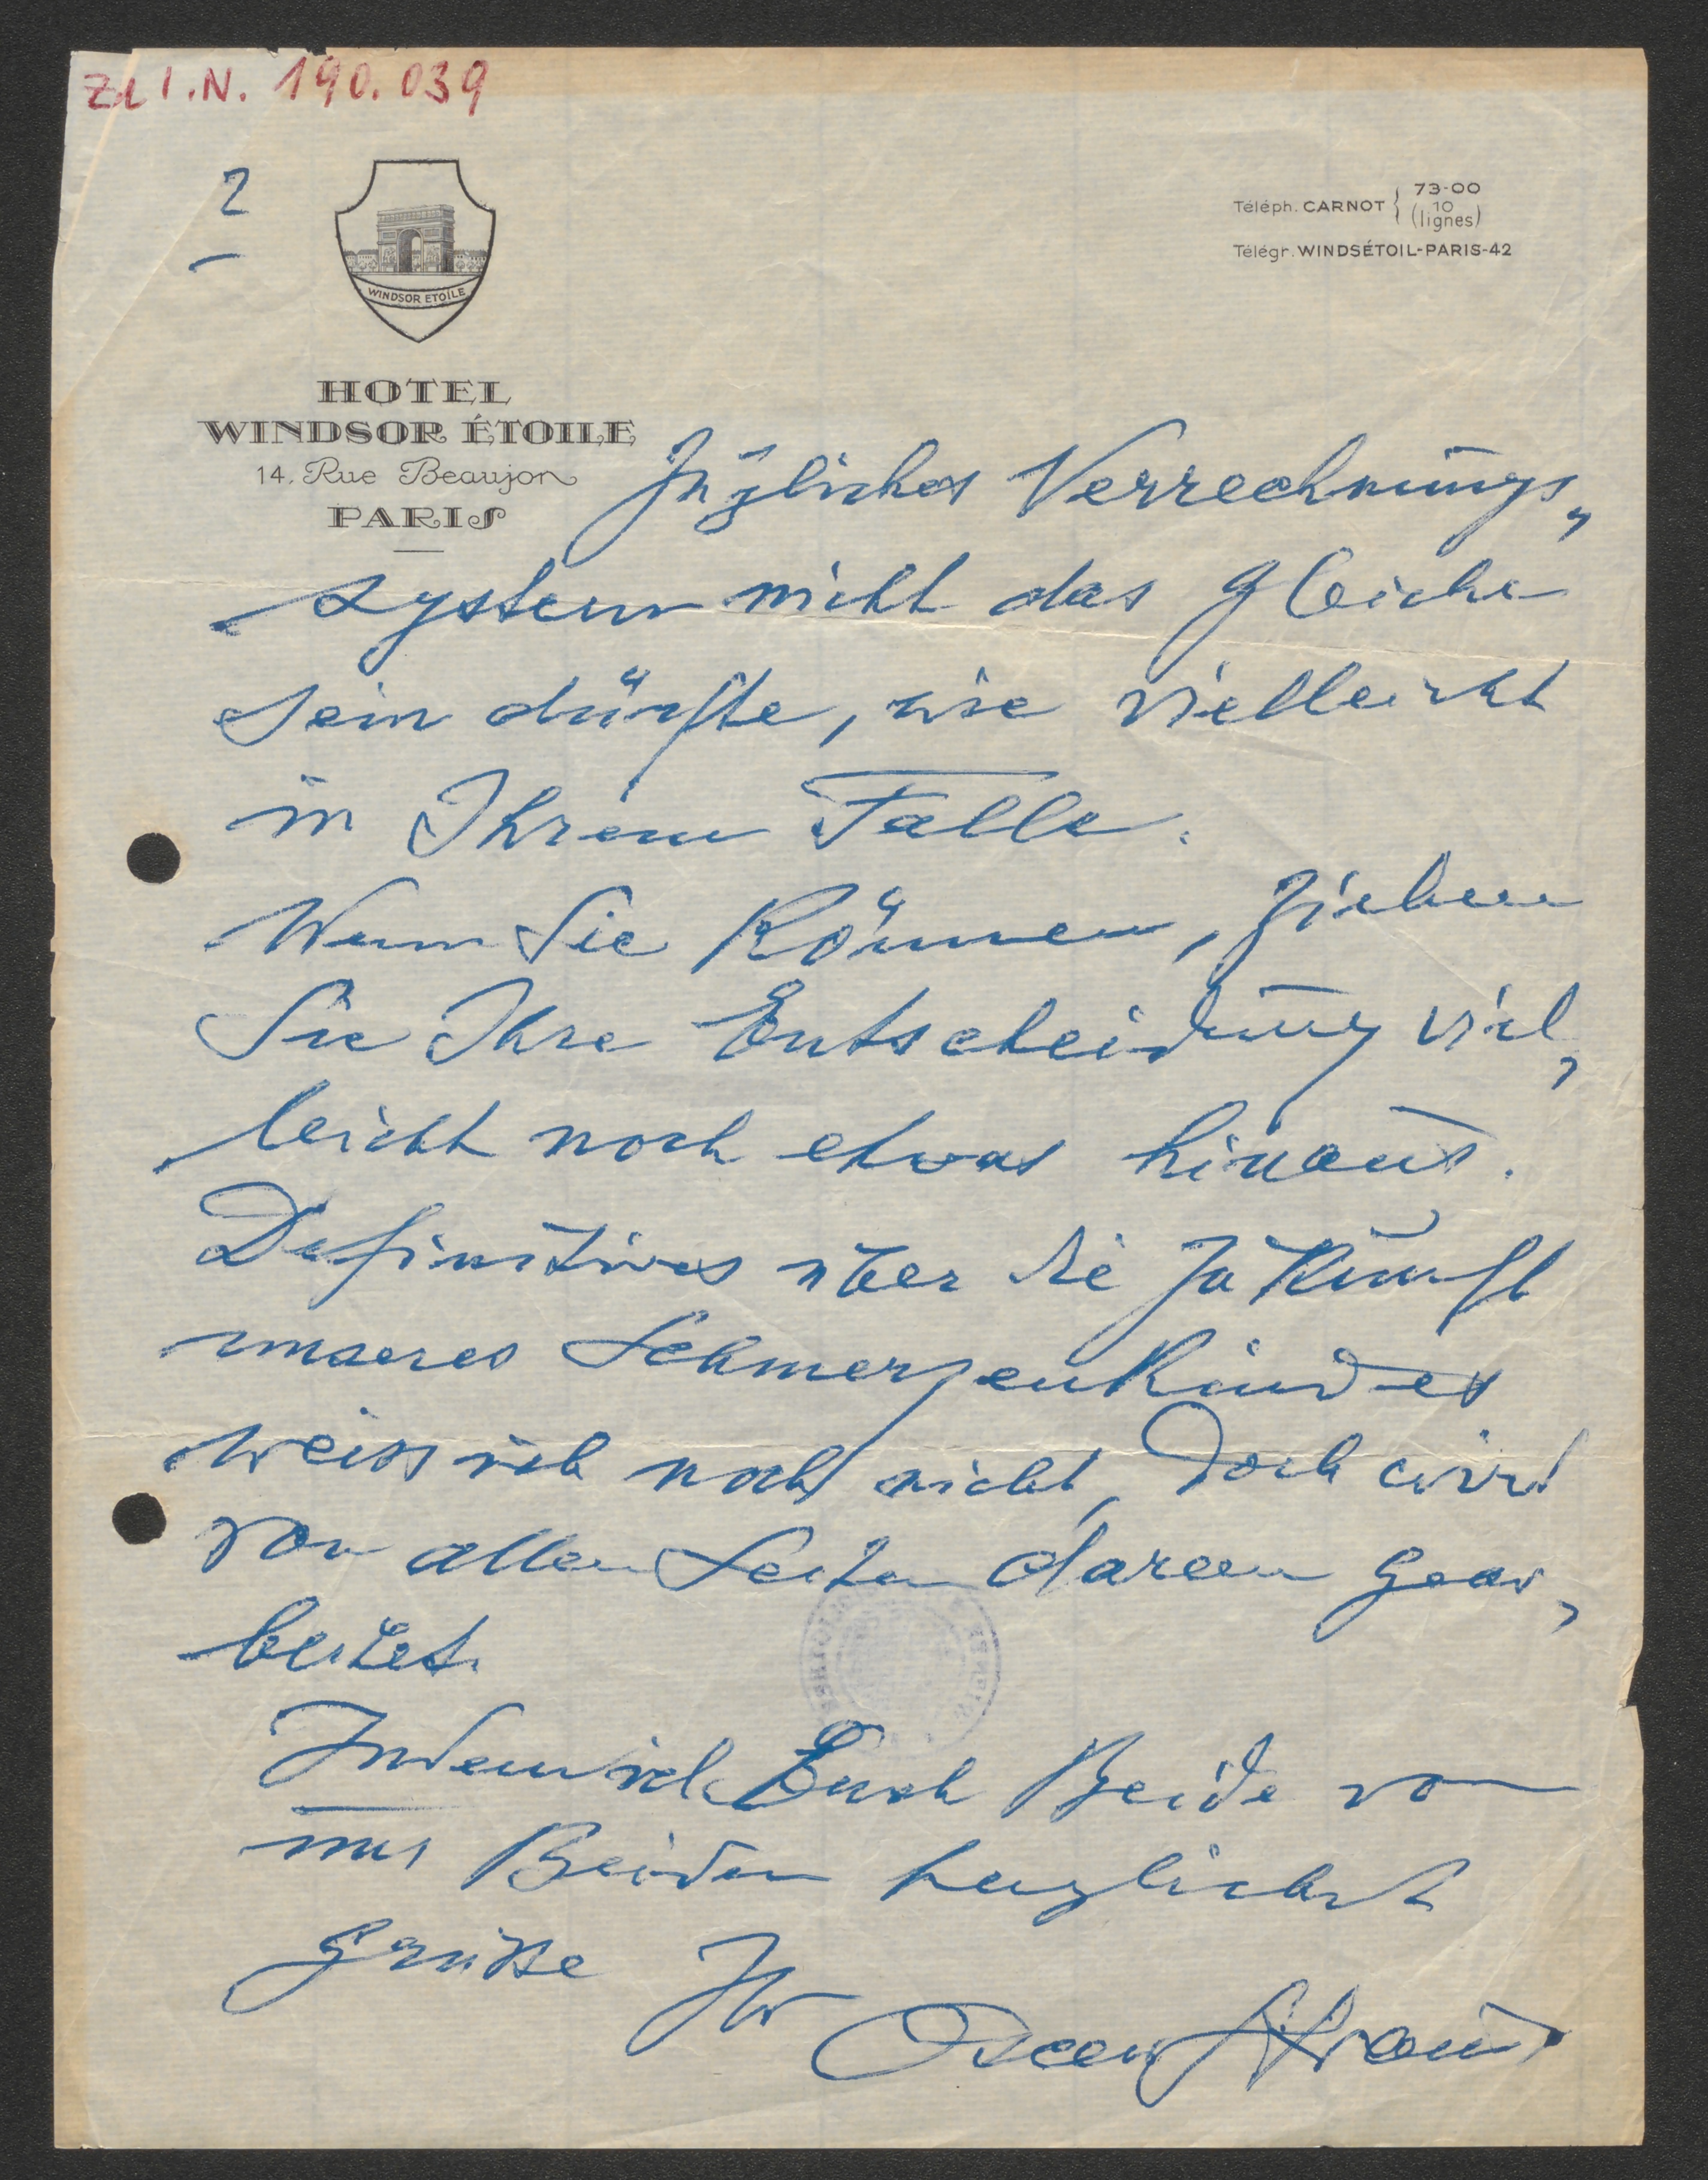 ZL I.N. 190.039
2
WINDSOR ETOILE
HOTEL
WINDSOR ÉTOILE
14, Rue Beaujon
PARIS
Téléph. CARNOT { 73-00
(10 lignes)
Télégr. WINDSÉTOIL-PARIS-42
zügliches Verrechnungs„
system nicht das gleiche
sein dürfte, wie vielleicht
in Ihrem Falle.
Wenn Sie können, ziehen
Sie Ihre Entscheidung viel„
leicht noch etwas hinaus.
Definitives über die Zukunft
unseres Schmerzenkindes
weiss ich noch nicht, doch wird
von allen Seiten daran gear„
beitet.
Indem ich Euch Beide von
uns Beiden herzlichst
grüsse Ihr
Oscar Straus